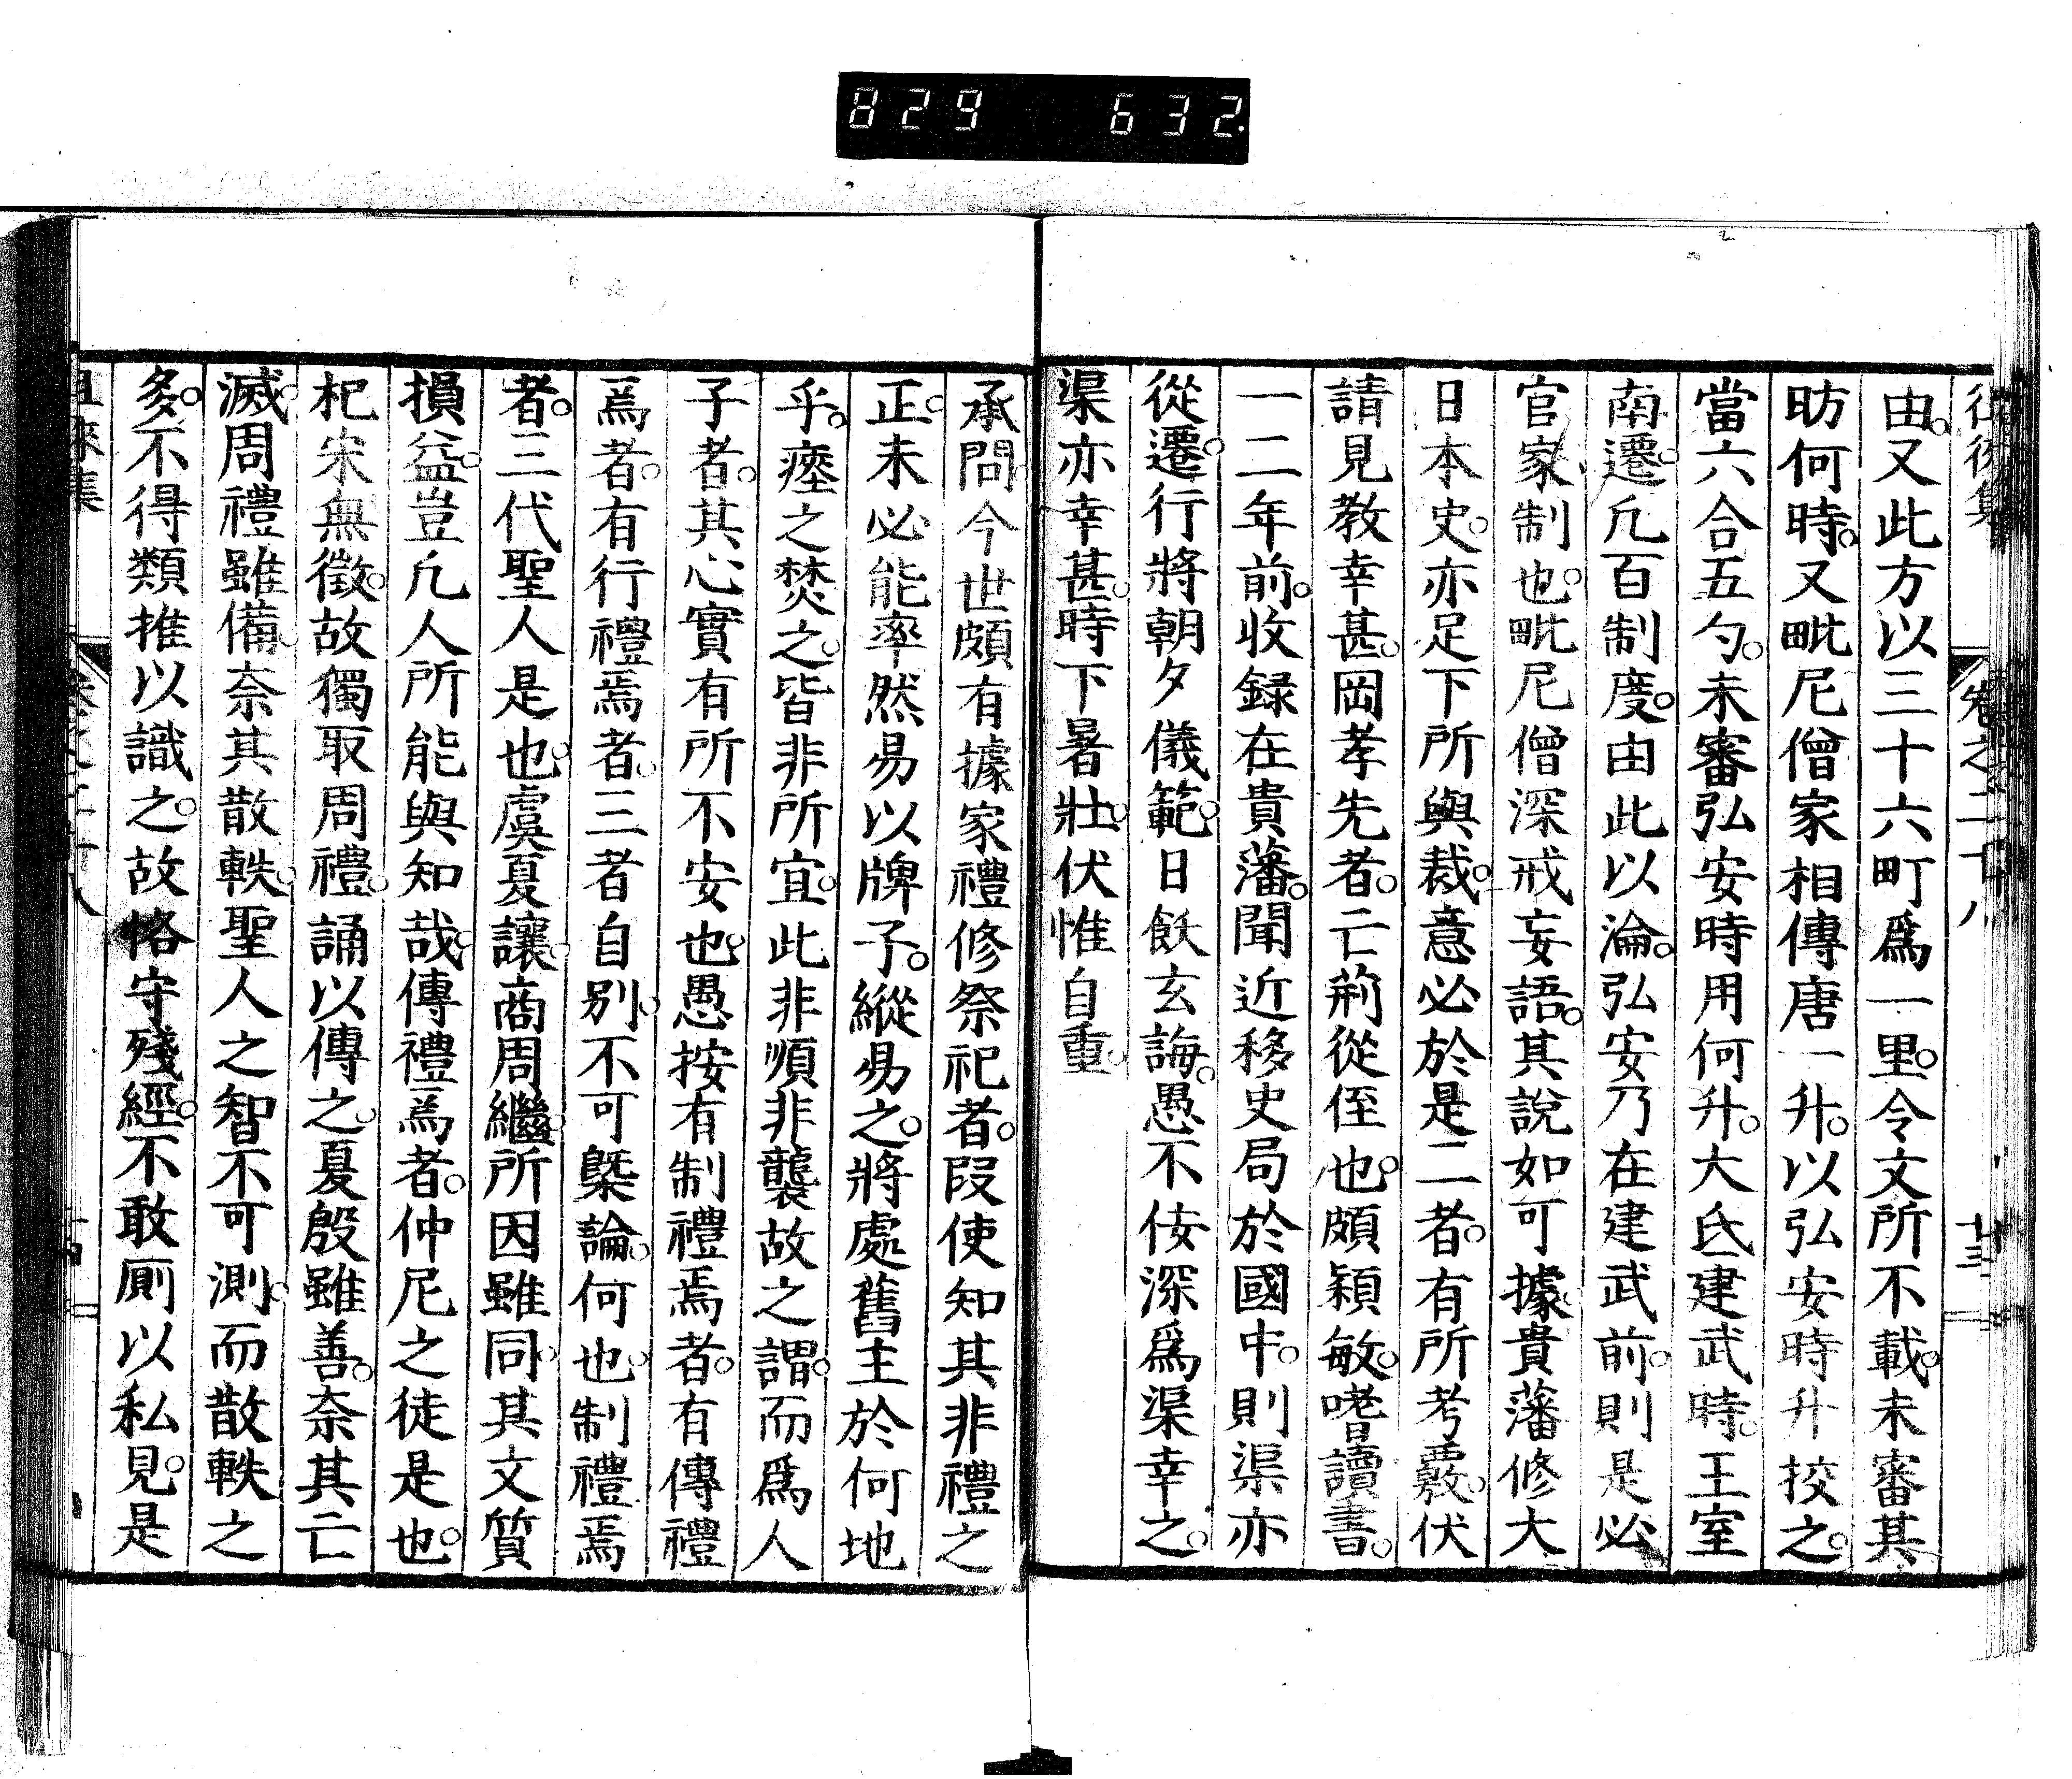 829 632.
卷之二十八
廿三
由。又此方以三十六町爲一里。令文所不載。未審其
昉何時。又毗尼僧家相傳唐一升。以弘安時升挍之。
當六合五勺。未審弘安時用何升。大氐建武時。王室
南遷。凡百制度。由此以淪。弘安乃在建武前。則是必
官家制也。毗尼僧深戒妄語。其說如可據。貴藩修大
日本史。亦足下所與裁。意必於是二者。有所考覈。伏
請見教幸甚。岡孝先者。亡荊從侄也。頗穎敏。嗜讀書。
一二年前。收録在貴藩。聞近移史局於國中。則渠亦
從遷。行將朝夕儀範。日飫玄誨。愚不佞深爲渠幸之。
渠亦幸甚。時下暑壯。伏惟自重。
承問。今世頗有據家禮修祭祀者。叚使知其非禮之
正。未必能率然易以牌子。縱易之。將處舊主於何地
乎。瘞之焚之。皆非所宜。此非順非襲故之謂。而爲人
子者。其心實有所不安也。愚按有制禮焉者。有傳禮
焉者。有行禮焉者。三者自别。不可槩論。何也。制禮焉
者。三代聖人是也。虞夏讓。商周繼。所因雖同。其文質
損益。豈凡人所能與知哉。傳禮焉者。仲尼之徒是也。
杞宋無徵。故獨取周禮。誦以傳之。夏殷雖善。奈其亡
滅。周禮雖備。奈其散軼。聖人之智不可測。而散軼之
多。不得類推以識之。故恪守殘經。不敢厠以私見。是